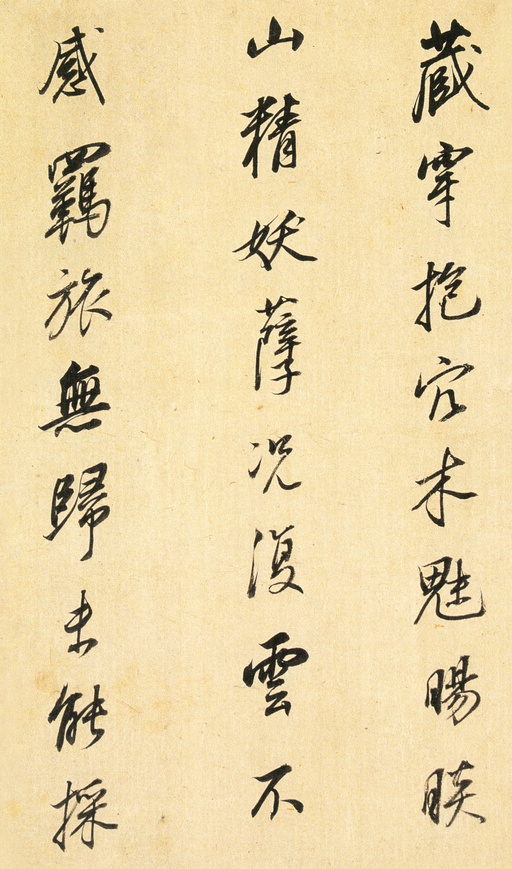 藏穿抱穴木魅睗睒
山精妖孽况復雲不
感羈旅無歸未能採